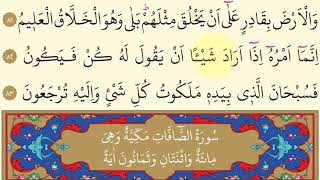 وَالْاَرْضَ بِقَادِرٍ عَلٰٓى اَنْ يَخْلُقَ مِثْلَهُمْ ؕ بَلٰى وَهُوَ الْخَلَّاقُ الْعَلِيْمُ ٨١
اِنَّمَآ اَمْرُهٗٓ اِذَآ اَرَادَ شَيْـًٔا اَنْ يَّقُوْلَ لَهٗ كُنْ فَيَكُوْنُ ٨٢
فَسُبْحَانَ الَّذٖي بِيَدِهٖ مَلَكُوْتُ كُلِّ شَيْءٍ وَاِلَيْهِ تُرْجَعُوْنَ ٨٣
سُوْرَةُ الصَّٓافَّاتِ مَكِّيَّةٌ وَهِيَ
مِائَةٌ وَاثْنَتَانِ وَثَمَانُوْنَ اٰيَةً